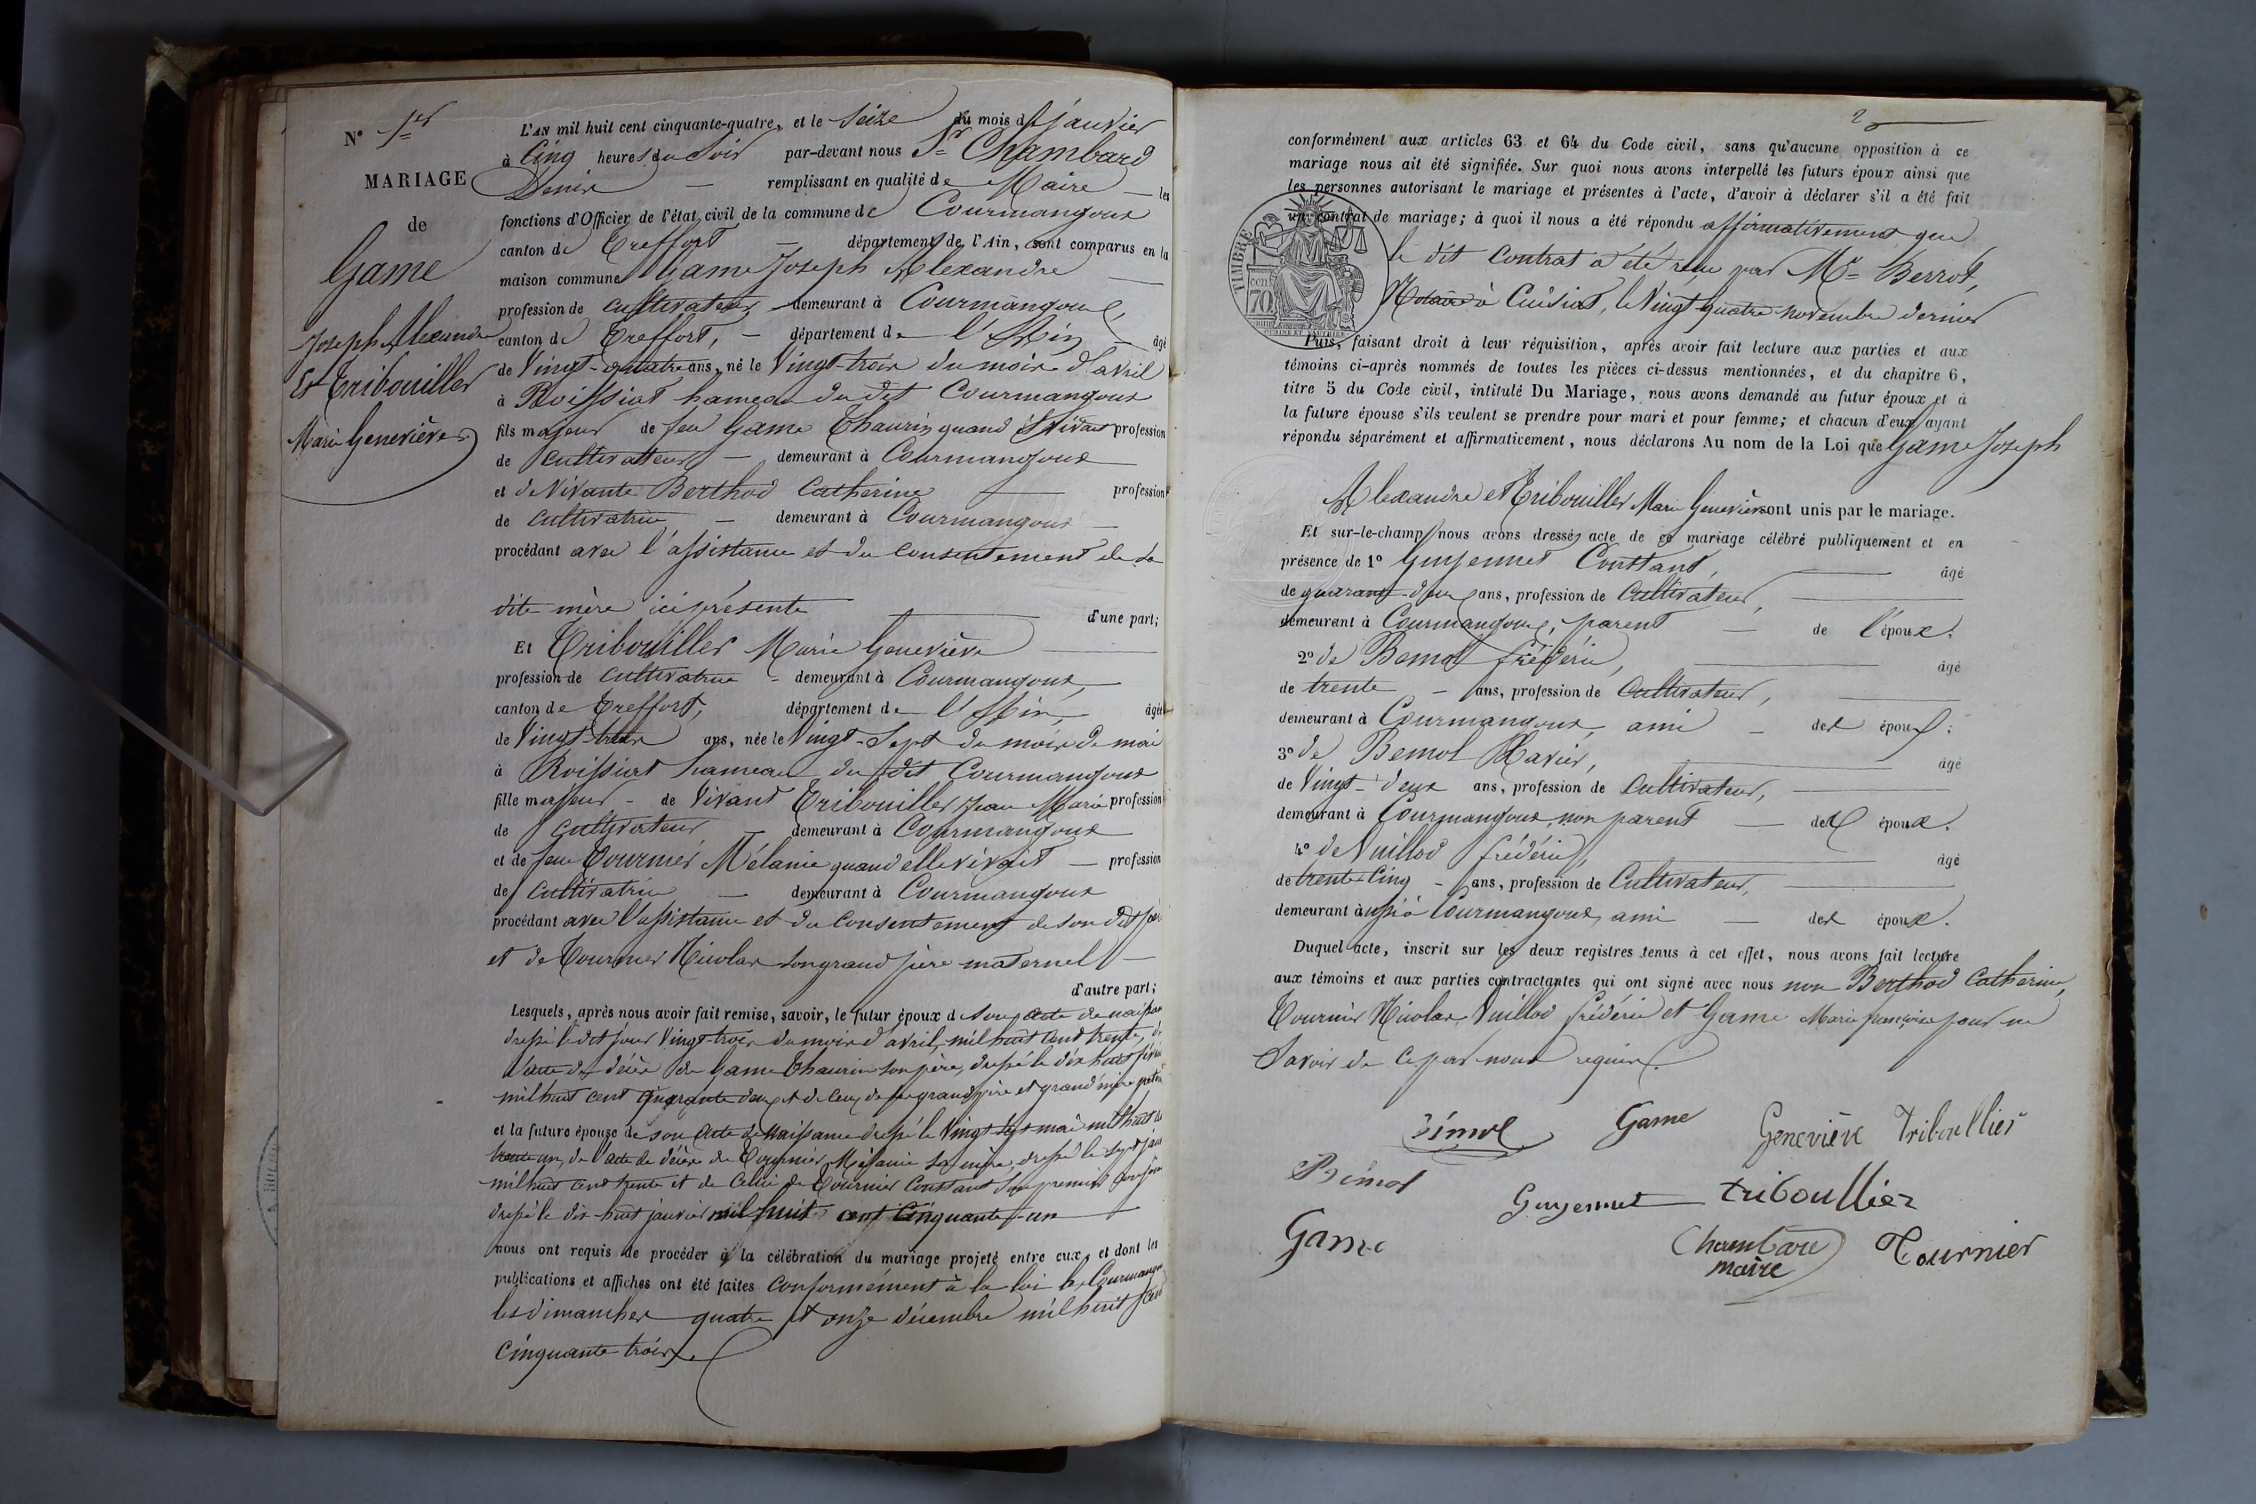 N° 1er
MARIAGE
de
Game
Joseph Alexandre
Et Tribouiller
Marie Geneviève
L'AN mil huit cent cinquante-quatre, et le Seize du mois de janvier
à Cinq heures du Soir par-devant nous Sr Chambard
Denis remplissant en qualité de Maire les
fonctions d'Officier de l'état civil de la commune de Courmangoux
canton de Treffort département de l'Ain, sont comparus en la
maison commune Game Joseph Alexandre
profession de cultivateur demeurant à Courmangoux,
canton de Treffort, département de l'Ain âgé
de Vingt-quatre ans, né le Vingt-trois du mois d'avril
à Roissiat hameau du dit Courmangoux
fils majeur de feu Game Thaurin quand il vivait profession
de cultivateur demeurant à Courmangoux
et de Vivante Berthod Catherine profession
de cultivatrice demeurant à Courmangoux
procédant avec l'assistance et du consentement de sa
dite mère ici présente d'une part;
Et Tribouiller Marie Geneviève
profession de cultivatrice demeurant à Courmangoux,
canton de Treffort, département de l'Ain, âgée
de Vingt-trois ans, née le Vingt-Sept du mois de mai
à Roissiat hameau du dit Courmangoux
fille majeur de Vivant Tribouiller Jean Marie profession
de cultivateur demeurant à Courmangoux
et de feue Tournier Mélanie quand elle vivait profession
de cultivatrice demeurant à Courmangoux
procédant avec l'assistance et du consentement de son dit père
et de Tournier Nicolas son grand père maternel
d'autre part;
Lesquels, après nous avoir fait remise, savoir, le futur époux de son acte de naissance
dressé le dit jour Vingt-trois du mois d'avril mil huit cent trente, de
l'acte de décès de Game Thaurin son père, dressé le dix huit
mil huit cent quarante deux et de ceux de ses grand père et grand'mère
et la future épouse de son acte de naissance dressé le Vingt sept mai mil huit
trente un, de l'acte de décès de Tournier Mélanie sa mère, dressé le sept
mil huit cent trente et de celui de Tournier Constant Son premier
dressé le dix-huit janvier mil huit cent cinquante-un
nous ont requis de procéder à la célébration du mariage projeté entre eux, et dont les
publications et affiches ont été faites conformément à la loi à Courmangoux
les dimanches quatre et onze décembre mil huit cent
cinquante trois.
2
conformément aux articles 63 et 64 du Code civil, sans qu'aucune opposition à ce
mariage nous ait été signifiée. Sur quoi nous avons interpellé les futurs époux ainsi que
les personnes autorisant le mariage et présentes à l'acte, d'avoir à déclarer s'il a été fait
un contrat de mariage; à quoi il nous a été répondu affirmativement que
le dit contrat a été reçu par Me Berrot,
Notaire à Cuisiat, le Vingt-quatre novembre dernier
TIMBRE
70
Puis, faisant droit à leur réquisition, après avoir fait lecture aux parties et aux
témoins ci-après nommés de toutes les pièces ci-dessus mentionnées, et du chapitre 6,
titre 5 du Code civil, intitulé Du Mariage, nous avons demandé au futur époux et à
la future épouse s'ils veulent se prendre pour mari et pour femme; et chacun d'eux ayant
répondu séparément et affirmativement, nous déclarons Au nom de la Loi que Game Joseph
Alexandre et Tribouiller Marie Geneviève sont unis par le mariage.
Et sur-le-champ nous avons dressé acte de ce mariage célébré publiquement et en
présence de 1° Guyennet Constant, âgé
de quarante-deux ans, profession de Cultivateur,
demeurant à Courmangoux, parent de l'époux.
2° de Bemol frédéric, âgé
de trente ans, profession de Cultivateur,
demeurant à Courmangoux ami des époux;
3° de Bemol Xavier, âgé
de Vingt-deux ans, profession de Cultivateur,
demeurant à Courmangoux, non parent des époux.
4° de Vuillod frédéric, âgé
de trente-Cinq ans, profession de Cultivateur,
demeurant aussi à Courmangoux, ami des époux.
Duquel acte, inscrit sur les deux registres tenus à cet effet, nous avons fait lecture
aux témoins et aux parties contractantes qui ont signé avec nous non Berthod Catherine,
Tournier Nicolas, Vuillod frédéric et Game Marie françoise pour ne
Savoir de ce par nous requis.
Bémol Game Geneviève Triboullier
Bémol Guyennet triboullier
Game Chambard Tournier
maire